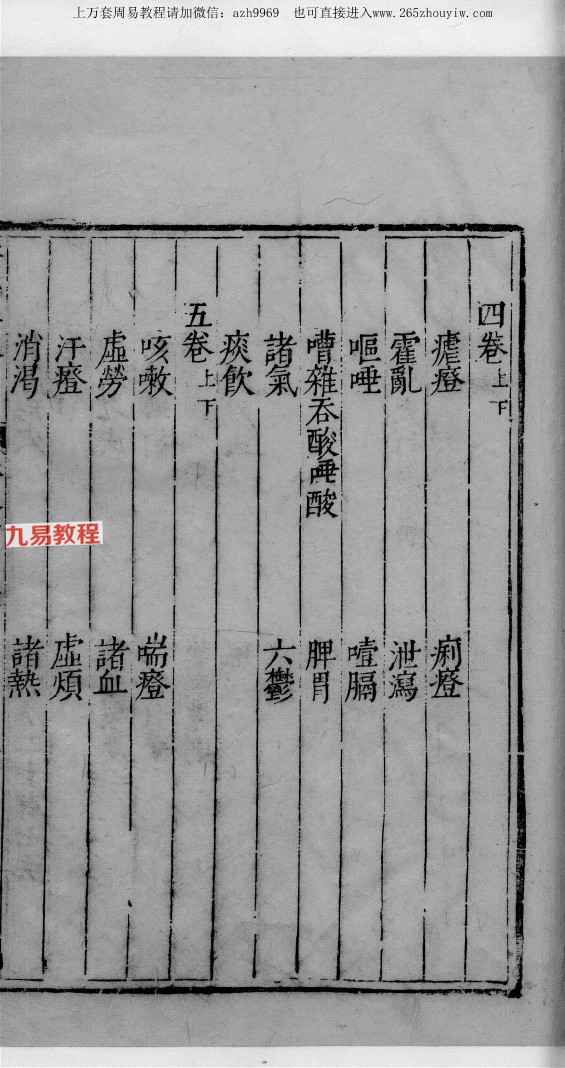 上万套周易教程请加微信：azh9969　也可直接进入www.265zhouyiw.com
四卷上下
瘧證　痢證
霍亂　泄瀉
嘔唾　噎膈
嘈雜吞酸唾酸　脾胃
諸氣　六鬱
痰飲
五卷上下
咳嗽　喘證
虛勞　諸血
汗證　虛煩
消渴　諸熱
九易教程